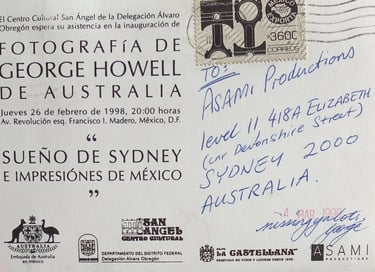 El Centro Cultural San Ángel de la Delegación Álvaro
Obregón espera su asistencia en la inauguración de
FOTOGRAFÍA DE
GEORGE HOWELL
DE AUSTRALIA
Jueves 26 de febrero de 1998, 20:00 horas
Av. Revolución esq. Francisco I. Madero, México, D.F.
“
SUEÑO DE SYDNEY
E IMPRESIÓNES DE MÉXICO
”
AUSTRALIA
Embajada de Australia
en México
SAN
ANGEL
CENTRO CULTURAL
DEPARTAMENTO DEL DISTRITO FEDERAL
Delegación Álvaro Obregón
MEXICO EXPORTA
360C
CORREOS
TO:
ASAMI Productions
level 11 418A ELIZABETH
(cnr Devonshire Street)
SYDNEY 2000
AUSTRALIA.
4 MAR 1998
missing ya lots
George
LA CASTELLANA
ASAMI
PRODUCTIONS